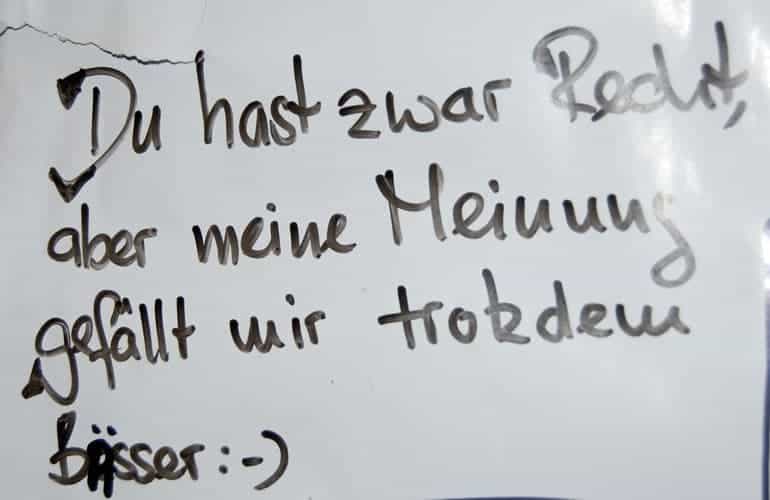 Du hast zwar Recht,
aber meine Meinung
gefällt mir trotzdem
bässer :-)